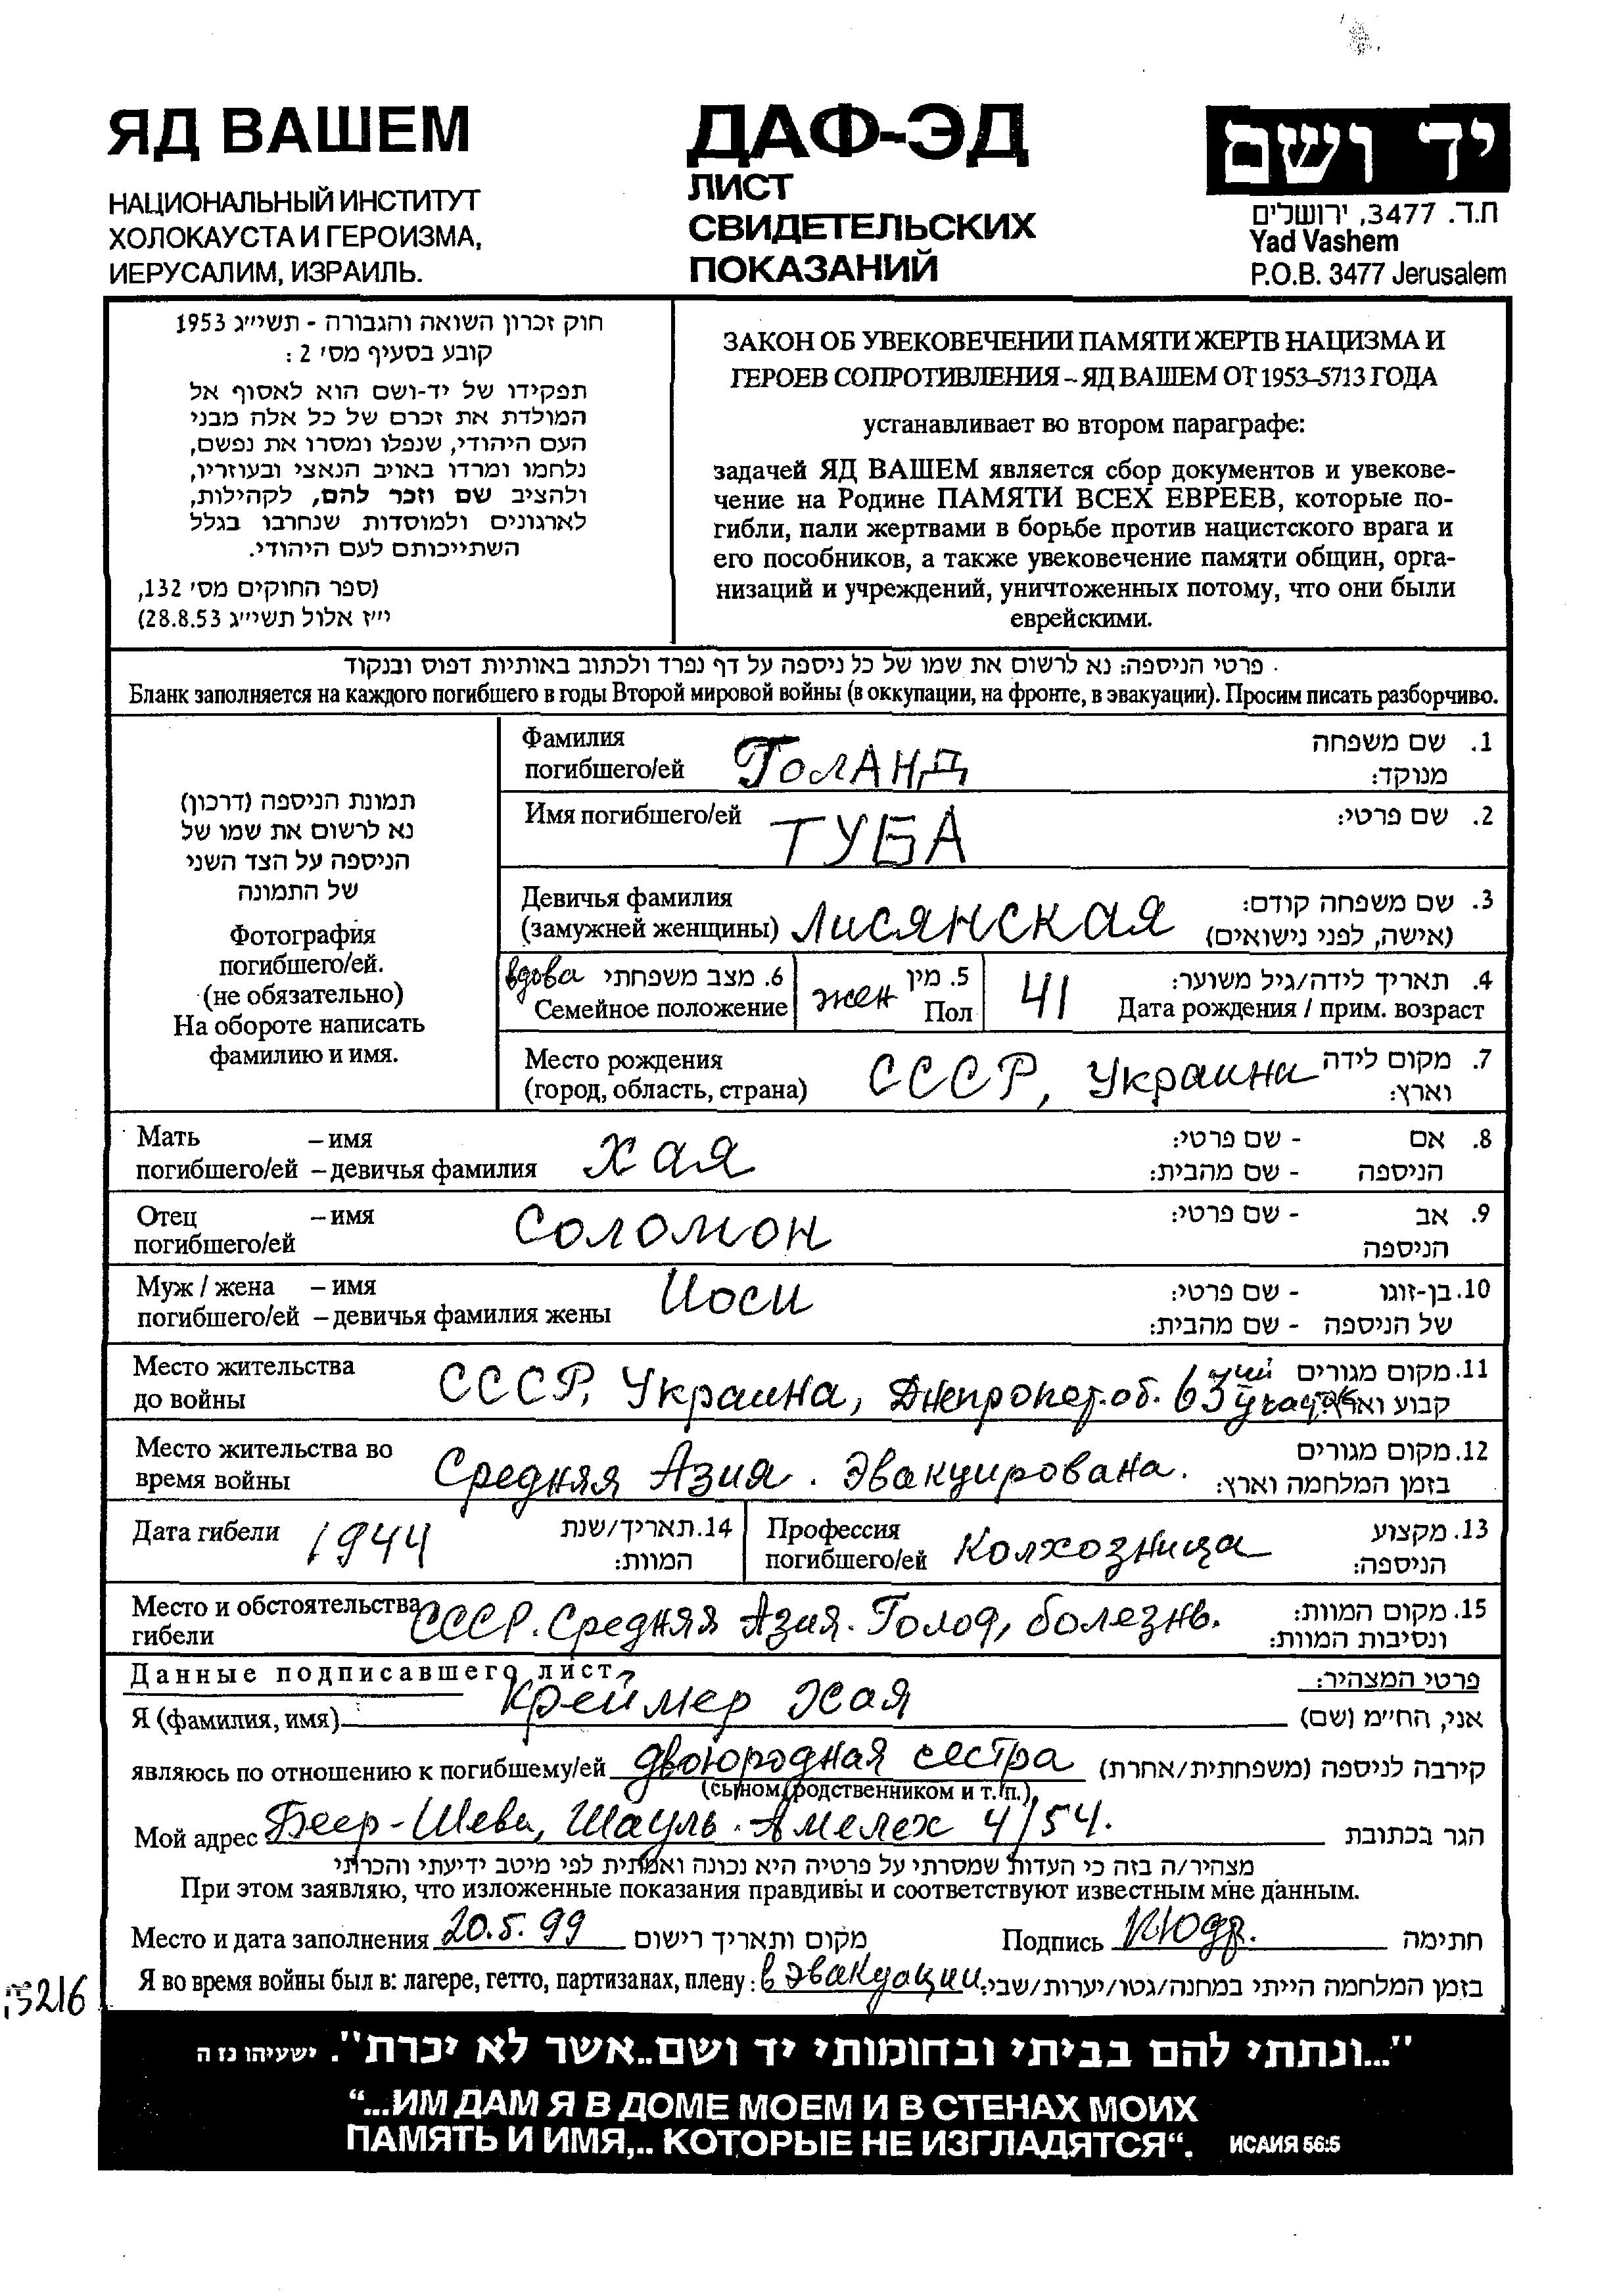 ЯД ВАШЕМ
НАЦИОНАЛЬНЫЙ ИНСТИТУТ
ХОЛОКАУСТА И ГЕРОИЗМА,
ИЕРУСАЛИМ, ИЗРАИЛЬ.
ДАФ-ЭД
ЛИСТ
СВИДЕТЕЛЬСКИХ
ПОКАЗАНИЙ
יד ושם
ת.ד. 3477, ירושלים
Yad Vashem
P.O.B. 3477 Jerusalem
חוק זכרון השואה והגבורה - תשי״ג 1953
קובע בסעיף מס׳ 2 :
תפקידו של יד-ושם הוא לאסוף אל
המולדת את זכרם של כל אלה מבני
העם היהודי, שנפלו ומסרו את נפשם,
נלחמו ומרדו באויב הנאצי ובעוזריו,
ולהציב שם וזכר להם, לקהילות,
לארגונים ולמוסדות שנחרבו בגלל
השתייכותם לעם היהודי.
(ספר החוקים מס׳ 132,
י״ז אלול תשי״ג 28.8.53)
ЗАКОН ОБ УВЕКОВЕЧЕНИИ ПАМЯТИ ЖЕРТВ НАЦИЗМА И
ГЕРОЕВ СОПРОТИВЛЕНИЯ – ЯД ВАШЕМ ОТ 1953–5713 ГОДА
устанавливает во втором параграфе:
задачей ЯД ВАШЕМ является сбор документов и увекове-
чение на Родине ПАМЯТИ ВСЕХ ЕВРЕЕВ, которые по-
гибли, пали жертвами в борьбе против нацистского врага и
его пособников, а также увековечение памяти общин, орга-
низаций и учреждений, уничтоженных потому, что они были
еврейскими.
פרטי הניספה: נא לרשום את שמו של כל ניספה על דף נפרד ולכתוב באותיות דפוס ובנקוד
Бланк заполняется на каждого погибшего в годы Второй мировой войны (в оккупации, на фронте, в эвакуации). Просим писать разборчиво.
תמונת הניספה (דרכון)
נא לרשום את שמו של
הניספה על הצד השני
של התמונה
Фотография
погибшего/ей.
(не обязательно)
На обороте написать
фамилию и имя.
Фамилия 1. שם משפחה
погибшего/ей ГОЛАНД מנוקד:
Имя погибшего/ей ТУБА 2. שם פרטי:
Девичья фамилия 3. שם משפחה קודם:
(замужней женщины) Лисянская (אישה, לפני נישואים)
вдова 6. מצב משפחתי 5. מין 4. תאריך לידה/גיל משוער:
Семейное положение жен Пол 41 Дата рождения / прим. возраст
Место рождения 7. מקום לידה
(город, область, страна) СССР, Украина וארץ:
Мать – имя Хая 8. אם - שם פרטי:
погибшего/ей – девичья фамилия הניספה - שם מהבית:
Отец – имя Соломон 9. אב - שם פרטי:
погибшего/ей הניספה
Муж / жена – имя Иоси 10. בן-זוגו - שם פרטי:
погибшего/ей – девичья фамилия жены של הניספה - שם מהבית:
Место жительства 11. מקום מגורים
до войны СССР, Украина, Днепропет. об. קבוע
Место жительства во 12. מקום מגורים
время войны Средняя Азия. Эвакуирована. בזמן המלחמה וארץ:
Дата гибели 1944 14. תאריך/שנת Профессия 13. מקצוע
המוות: погибшего/ей Колхозница הניספה:
Место и обстоятельства 15. מקום המוות:
гибели СССР. Средняя Азия. Голод, болезнь. ונסיבות המוות:
Данные подписавшего лист פרטי המצהיר:
Я (фамилия, имя) Креймер Хая אני, הח״מ (שם)
являюсь по отношению к погибшему/ей двоюродная сестра קירבה לניספה (משפחתית/אחרת)
(сыном, родственником и т. п.)
Мой адрес Беер-Шева, Шауль-Амелех 4/54. הגר בכתובת
מצהיר/ה בזה כי העדות שמסרתי על פרטיה היא נכונה ואמתית לפי מיטב ידיעתי והכרתי
При этом заявляю, что изложенные показания правдивы и соответствуют известным мне данным.
Место и дата заполнения 20.5.99 מקום ותאריך רישום Подпись חתימה
Я во время войны был в: лагере, гетто, партизанах, плену: в эвакуации בזמן המלחמה הייתי במחנה/גטו/יערות/שבי:
"...ונתתי להם בביתי ובחומותי יד ושם..אשר לא יכרת". ישעיהו נז ה
“...ИМ ДАМ Я В ДОМЕ МОЕМ И В СТЕНАХ МОИХ
ПАМЯТЬ И ИМЯ,.. КОТОРЫЕ НЕ ИЗГЛАДЯТСЯ“. ИСАИЯ 56:5